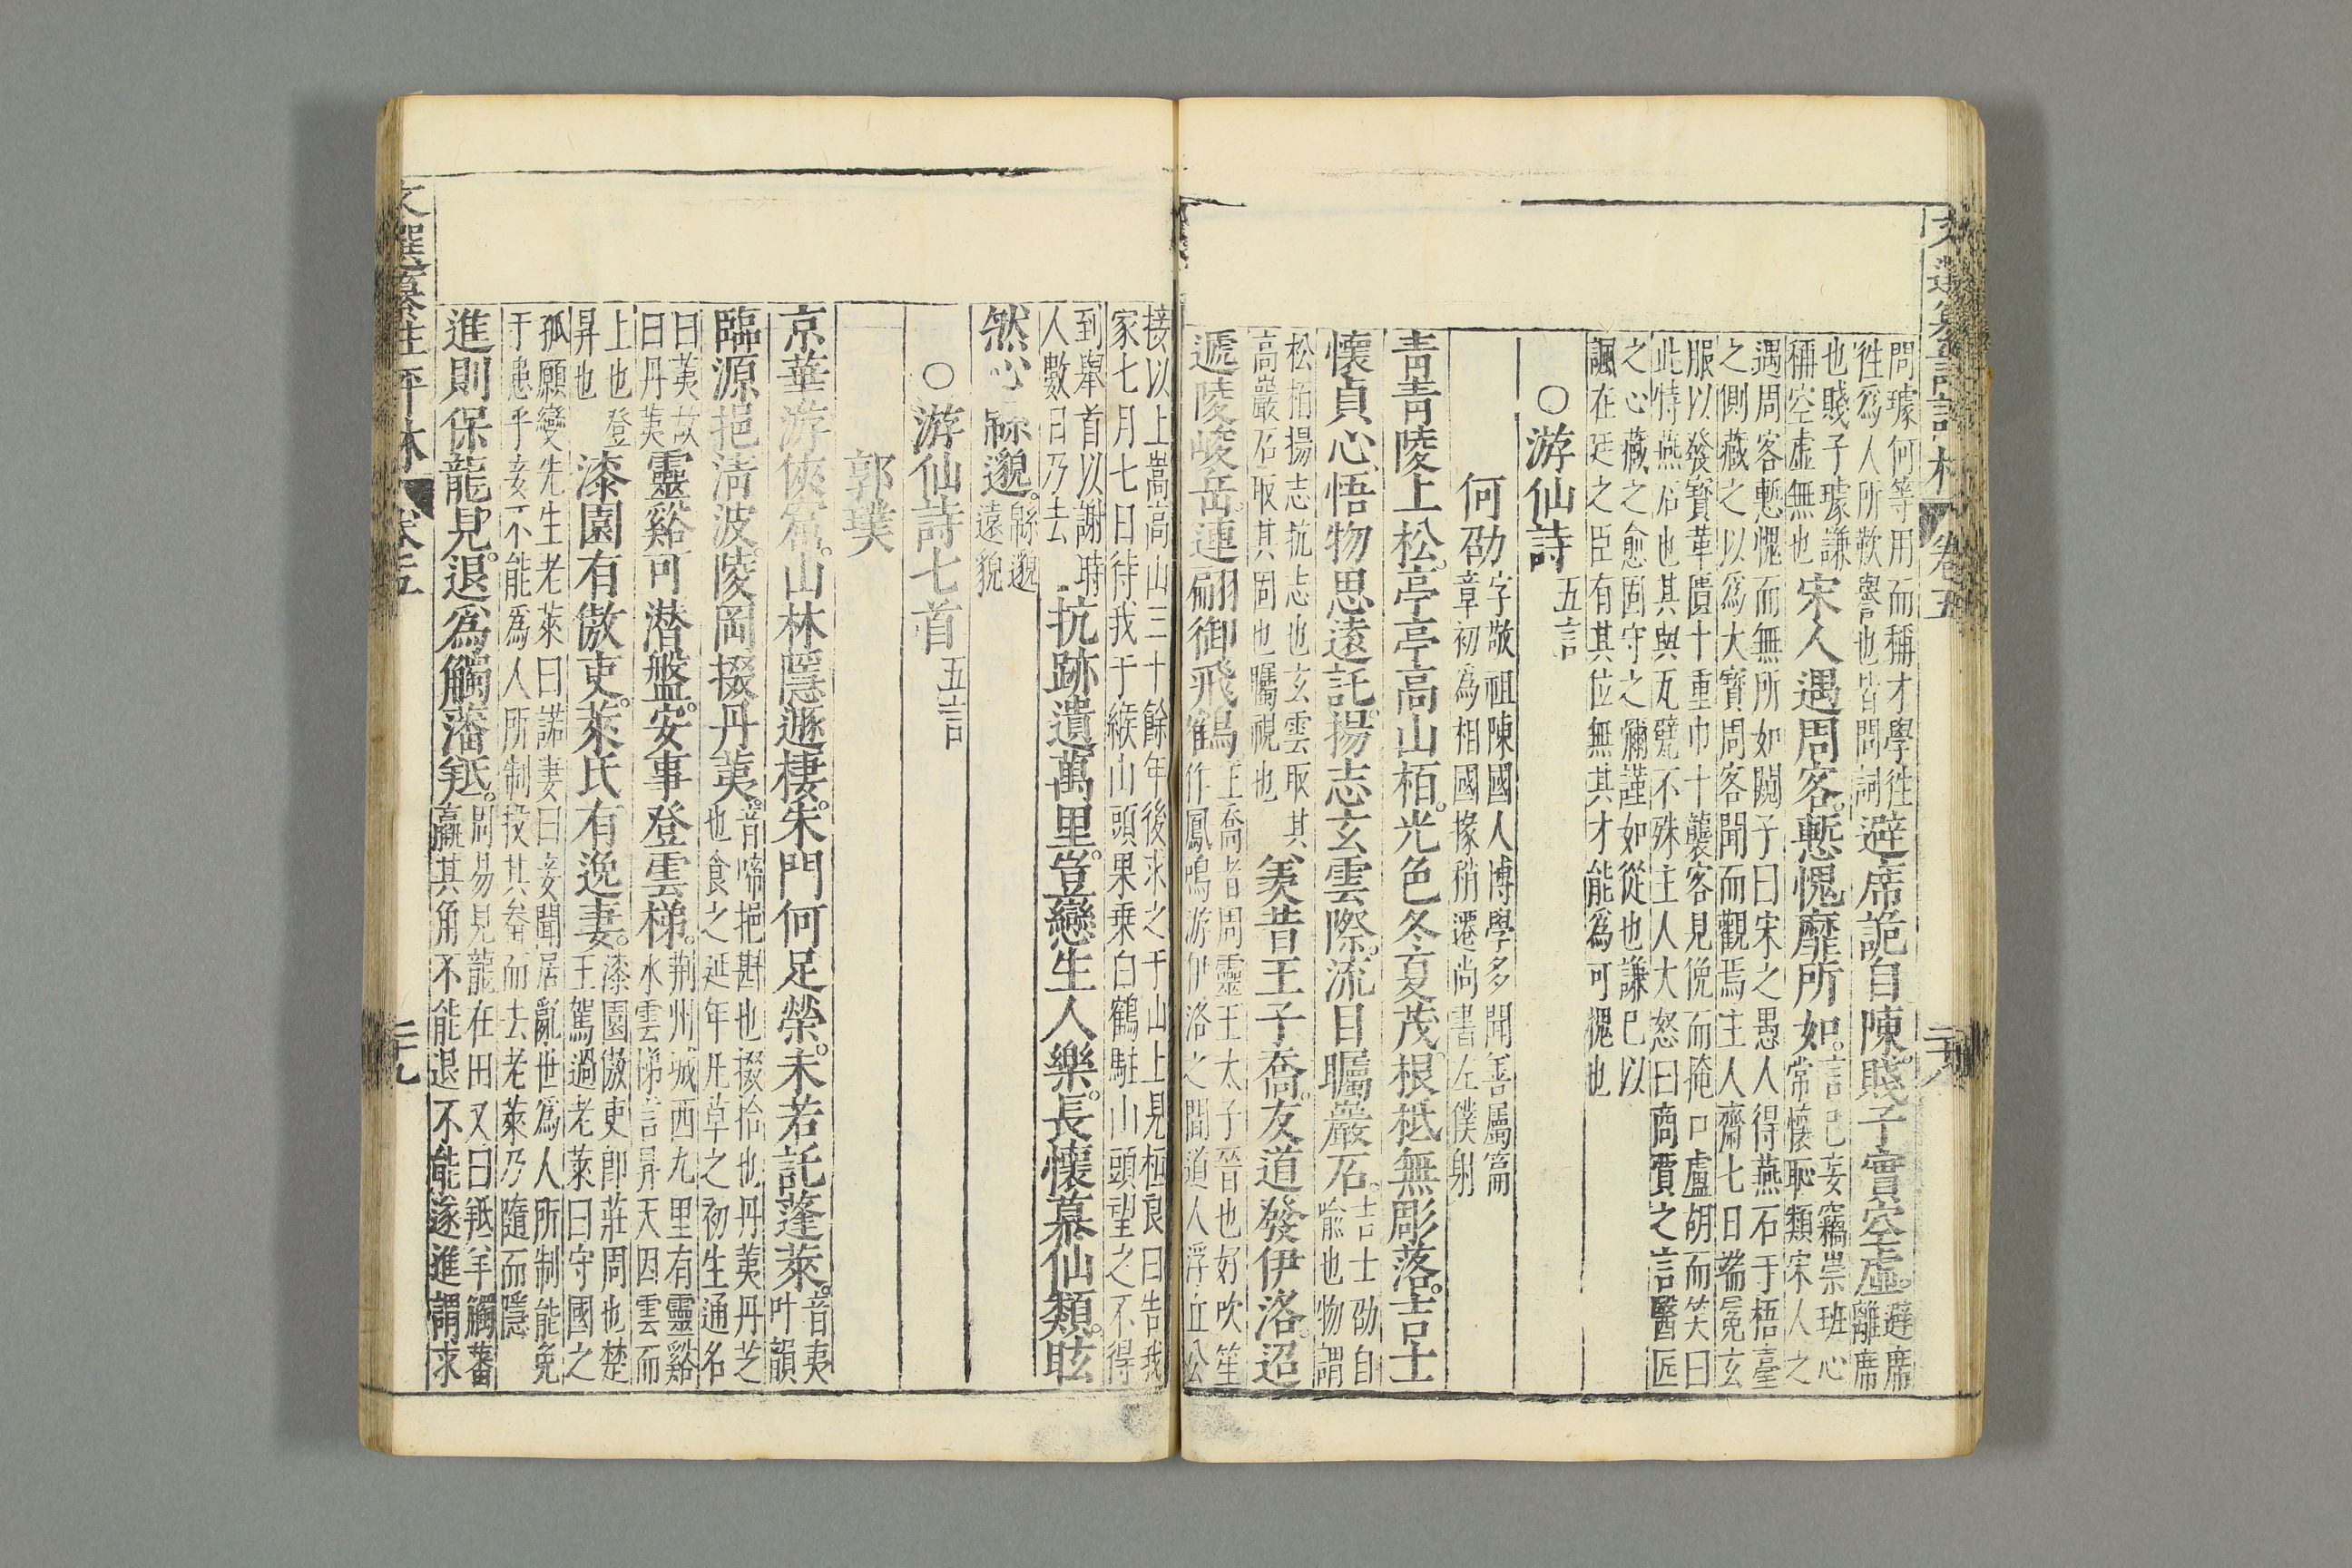 問璩何等用而稱才學徃
徃爲人所歎譽也皆問詞避席詭自陳。賤子實空虛。避席
離席
也賤子璩謙
稱空虛無也宋人遇周客。慙愧靡所如。言已妄竊崇班心
常懷恥類宋人之
遇周客慙愧而無所如闕子曰宋之愚人得燕石于梧臺
之側藏之以爲大寶周客聞而觀焉主人齋七日端冕玄
服以發寶革匱十重巾十襲客見俛而掩口盧胡而笑曰
此特燕石也其與瓦甓不殊主人大怒曰商賈之言醫匠
之心藏之愈固守之彌謹如從也謙已以
諷在廷之臣有其位無其才能爲可愧也
○游仙詩五言
何劭字敬祖陳國人博學多聞善屬篇
章初為相國掾稍遷尚書左僕射
青青陵上松。亭亭高山栢。光色冬夏茂。根柢無彫落。吉士
懷貞心。悟物思遠託。揚志玄雲際。流目矚巖石。吉士劭自
喻也物謂
松栢揚志抗志也玄雲取其
高巖石取其固也矚視也羨昔王子喬。友道發伊洛。迢
遞陵峻岳。連翩御飛鶴。王喬者周靈王太子晉也好吹笙
作鳳鳴游伊洛之間道人浮丘公
接以上嵩高山三十餘年後求之于山上見桓良曰告我
家七月七日待我于緱山頭果乗白鶴駐山頭望之不得
到舉首以謝時
人數日乃去抗跡遺萬里。豈戀生人樂。長懷慕仙類。眩
然心緜邈。緜邈
遠貌
○游仙詩七首五言
郭璞
京華游俠窟。山林隱遯棲。朱門何足榮。未若託蓬萊。音夷
叶韻
臨源挹淸波。陵岡掇丹荑。音啼挹斟也掇拾也丹荑丹芝
也食之延年凡草之初生通名
曰荑故
曰丹荑靈谿可潛盤。安事登雲梯。荆州城西九里有靈谿
水雲梯言昇天因雲而
上也登
昇也漆園有傲吏。萊氏有逸妻。漆園傲吏即莊周也楚
王駕過老萊曰守國之
孤願變先生老萊曰諾妻曰妾聞居亂世爲人所制能免
于患乎妾不能爲人所制投其畚而去老萊乃隨而隱
進則保龍見。退爲觸藩羝。周易見龍在田又曰羝羊觸藩
羸其角不能退不能遂進謂求
文選纂註評林 卷五 二十九